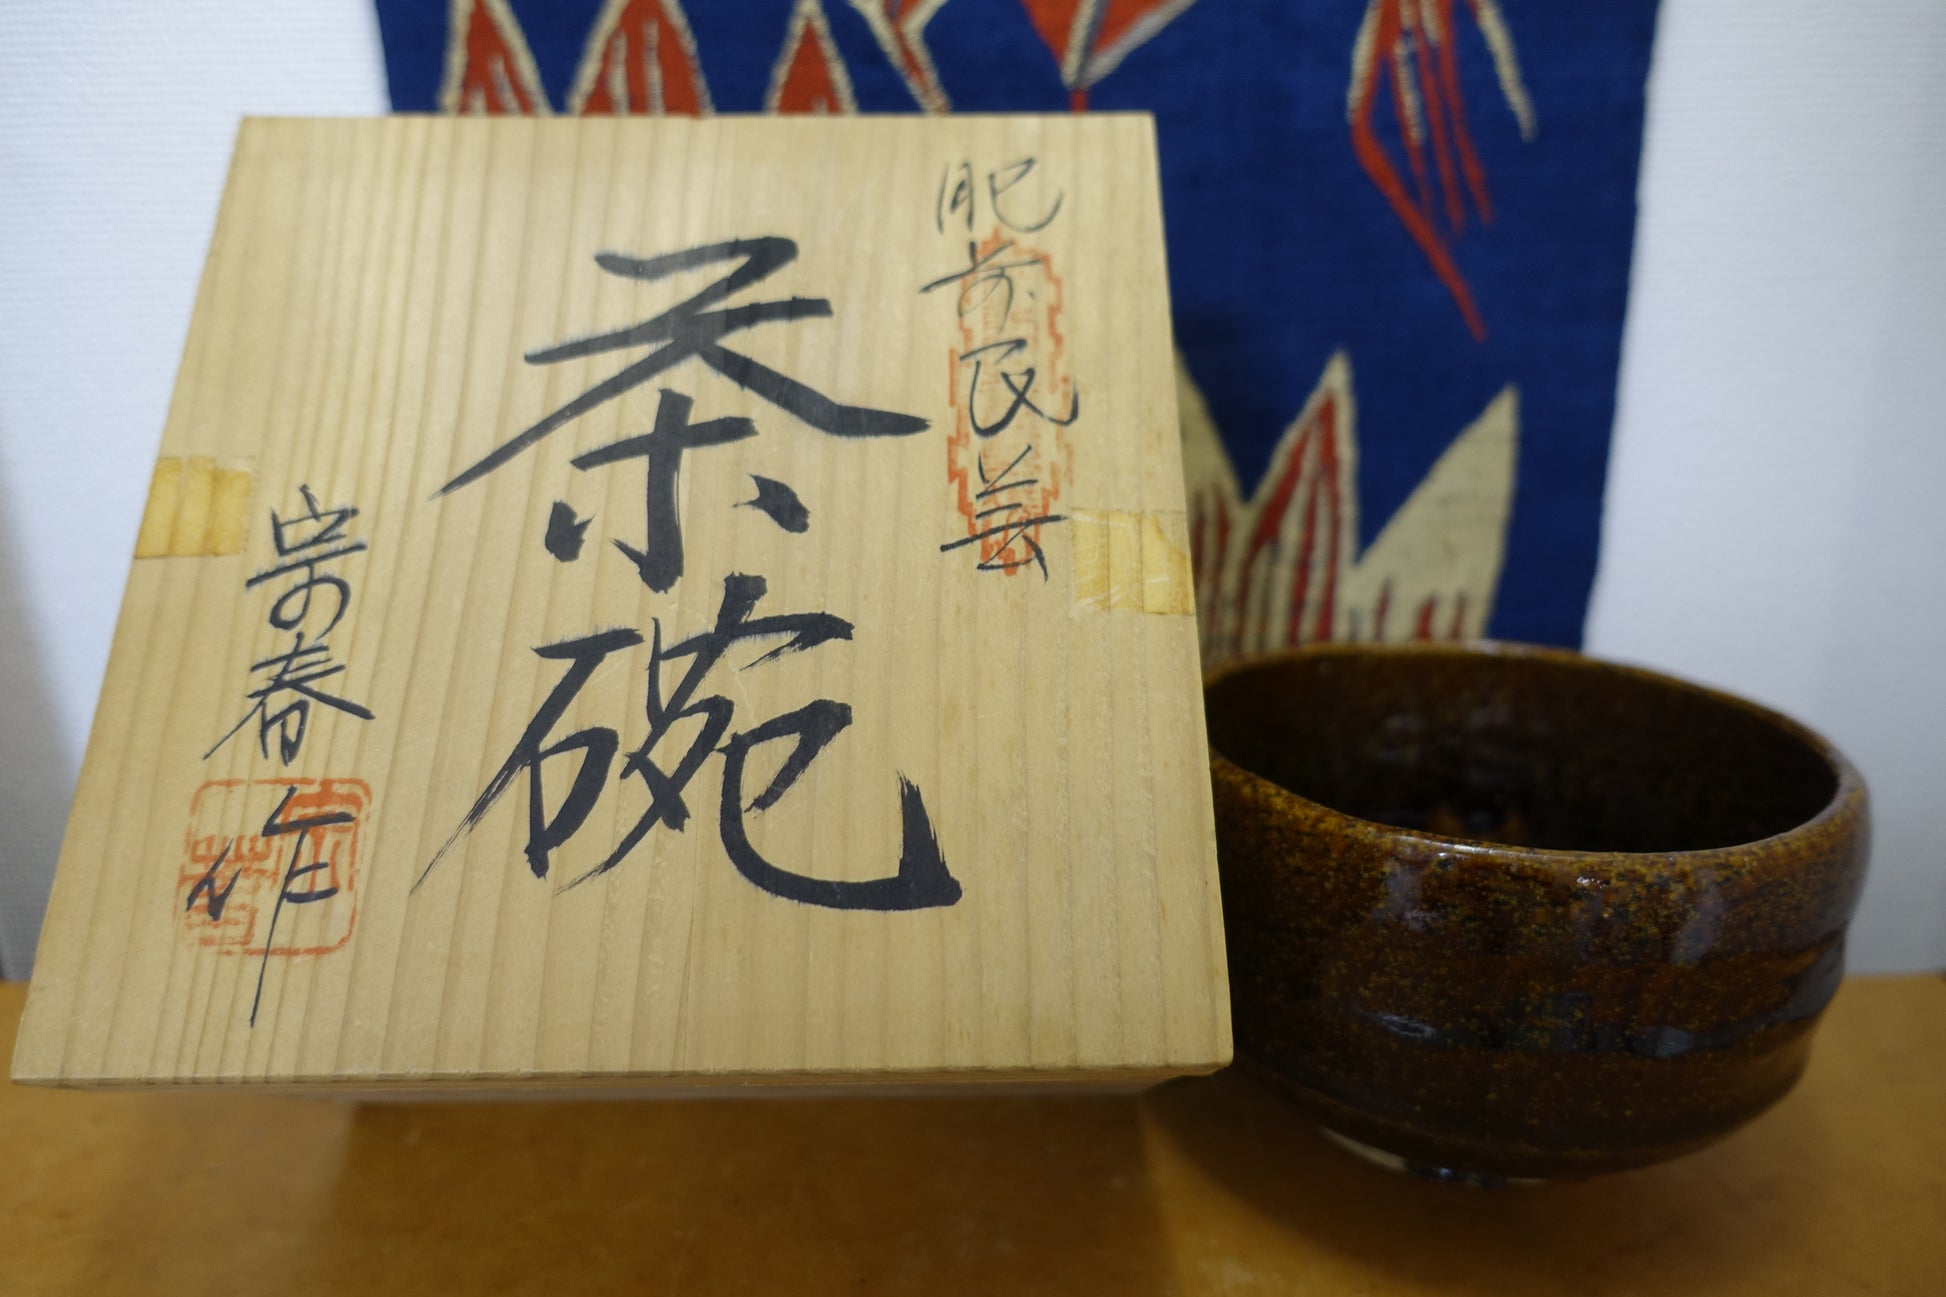 肥前民芸
茶碗
宗春作